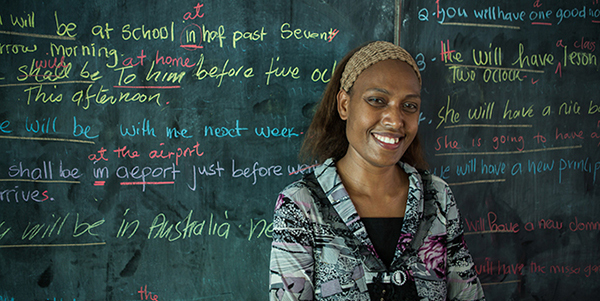 will be at school in haf past Seven
at
orrow morning.
shall be To him before five
at home
This afternoon.
will be with me next week.
at the airport
shall be in aeport just before
arrives.
will be in Australia ne
the
2. you will have one good
a
3. the will have leson
a class
Two o'clock.
she will have a nice
she is going to have a
will have a new
will have a new
will have the